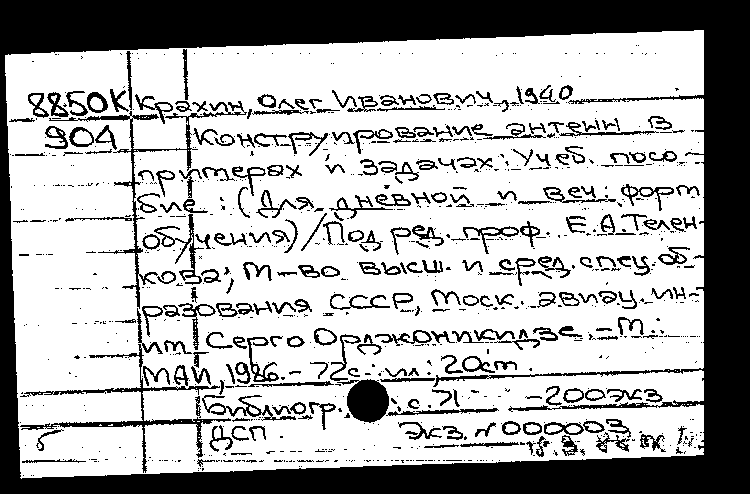 8850К Крахин, Олег Иванович, 1940
904 Конструирование антенн в
примерах и задачах: Учеб. посо-
бие : (Для дневной и веч. форм
обучения)/Под ред. проф. Е.А.Телен-
кова; М-во высш. и сред. спец. об-
разования СССР, Моск. авиац. ин-
т им. Серго Орджоникидзе. -М.:
МАИ, 1986. - 72с.: ил.; 20см.
Библиогр.: с.71 -200экз.
б ДСП. Экз. N 000003